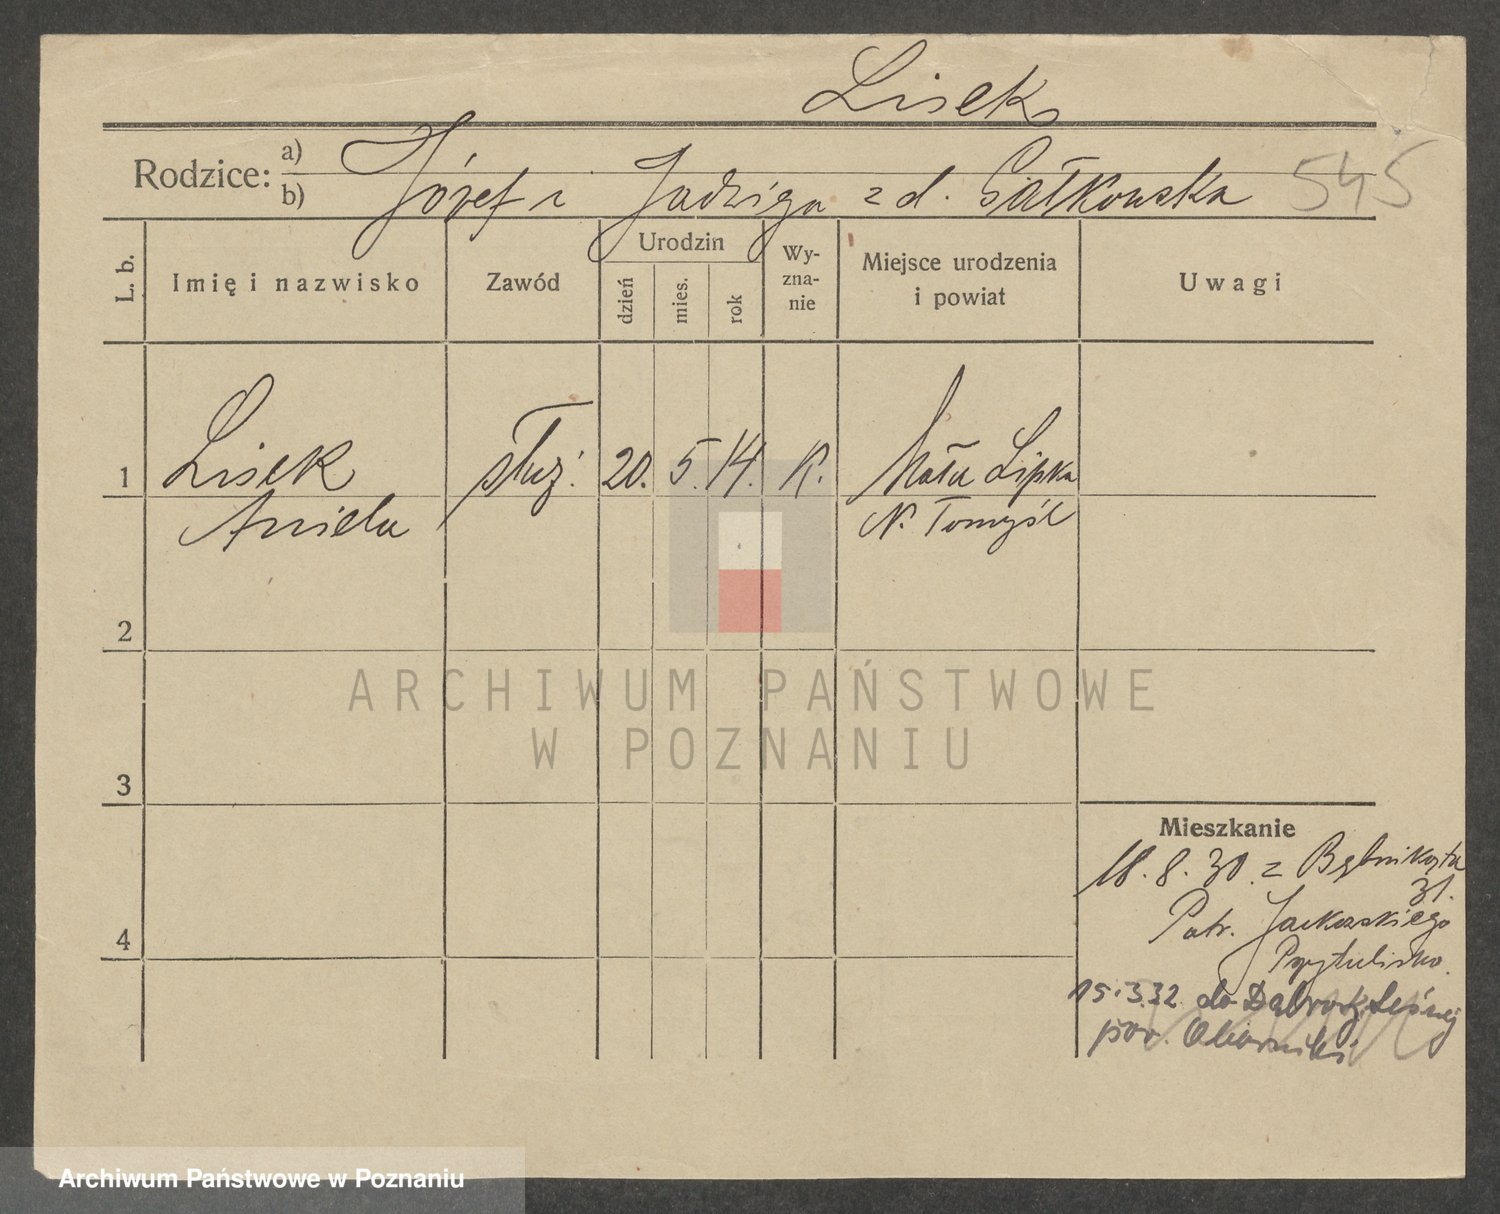 Lisek
Rodzice: a)
b)
Józef i Jadwiga z d. Gałkowska 545
L. b.
Imię i nazwisko
Zawód
Urodzin
dzień
mies.
rok
Wy-
zna-
nie
Miejsce urodzenia
i powiat
Uwagi
1 Lisek służ. 20. 5. 14. K. Mała Lipka
Aniela N. Tomyśl
2
3
4
Mieszkanie
18. 8. 30 z
31.
Patr. Jackowskiego
Przytulisko.
15.3.32 do Dąbrówki Leśnej
pow. Oborniki
ARCHIWUM PAŃSTWOWE
W POZNANIU
Archiwum Państwowe w Poznaniu